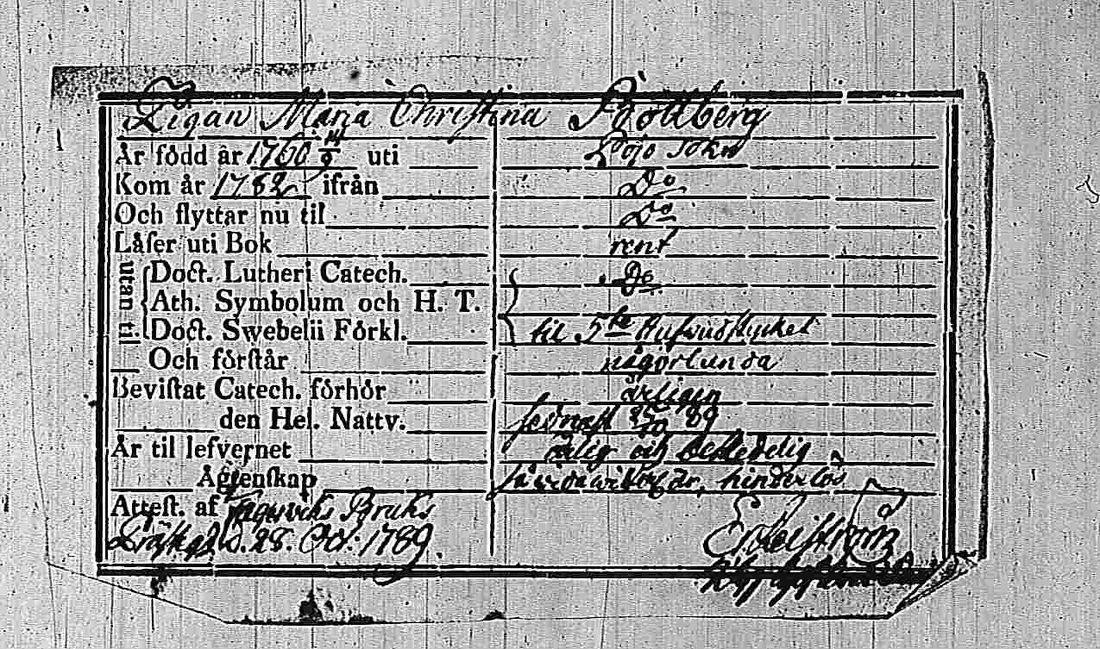 Pigan Maria Christina
År född år 1760 14/9 uti Lojo Sokn
Kom år 1782 ifrån Do
Och flyttar nu til Do
Låser uti Bok rent
utan til Doct. Lutheri Catech. Do
Ath. Symbolum och H. T.
Doct. Swebelii Förkl. til 5te Hufvudstycket
Och förstår någorlunda
Bevistat Catech. förhör årligen
den Hel. Nattv. sednast 25/10 89
År til lefvernet ärlig och beskedelig
Ägtenskap så vida witterl. är, hinderlös
Attest. af Fagerviks Bruks
d. 28. Oct. 1789.